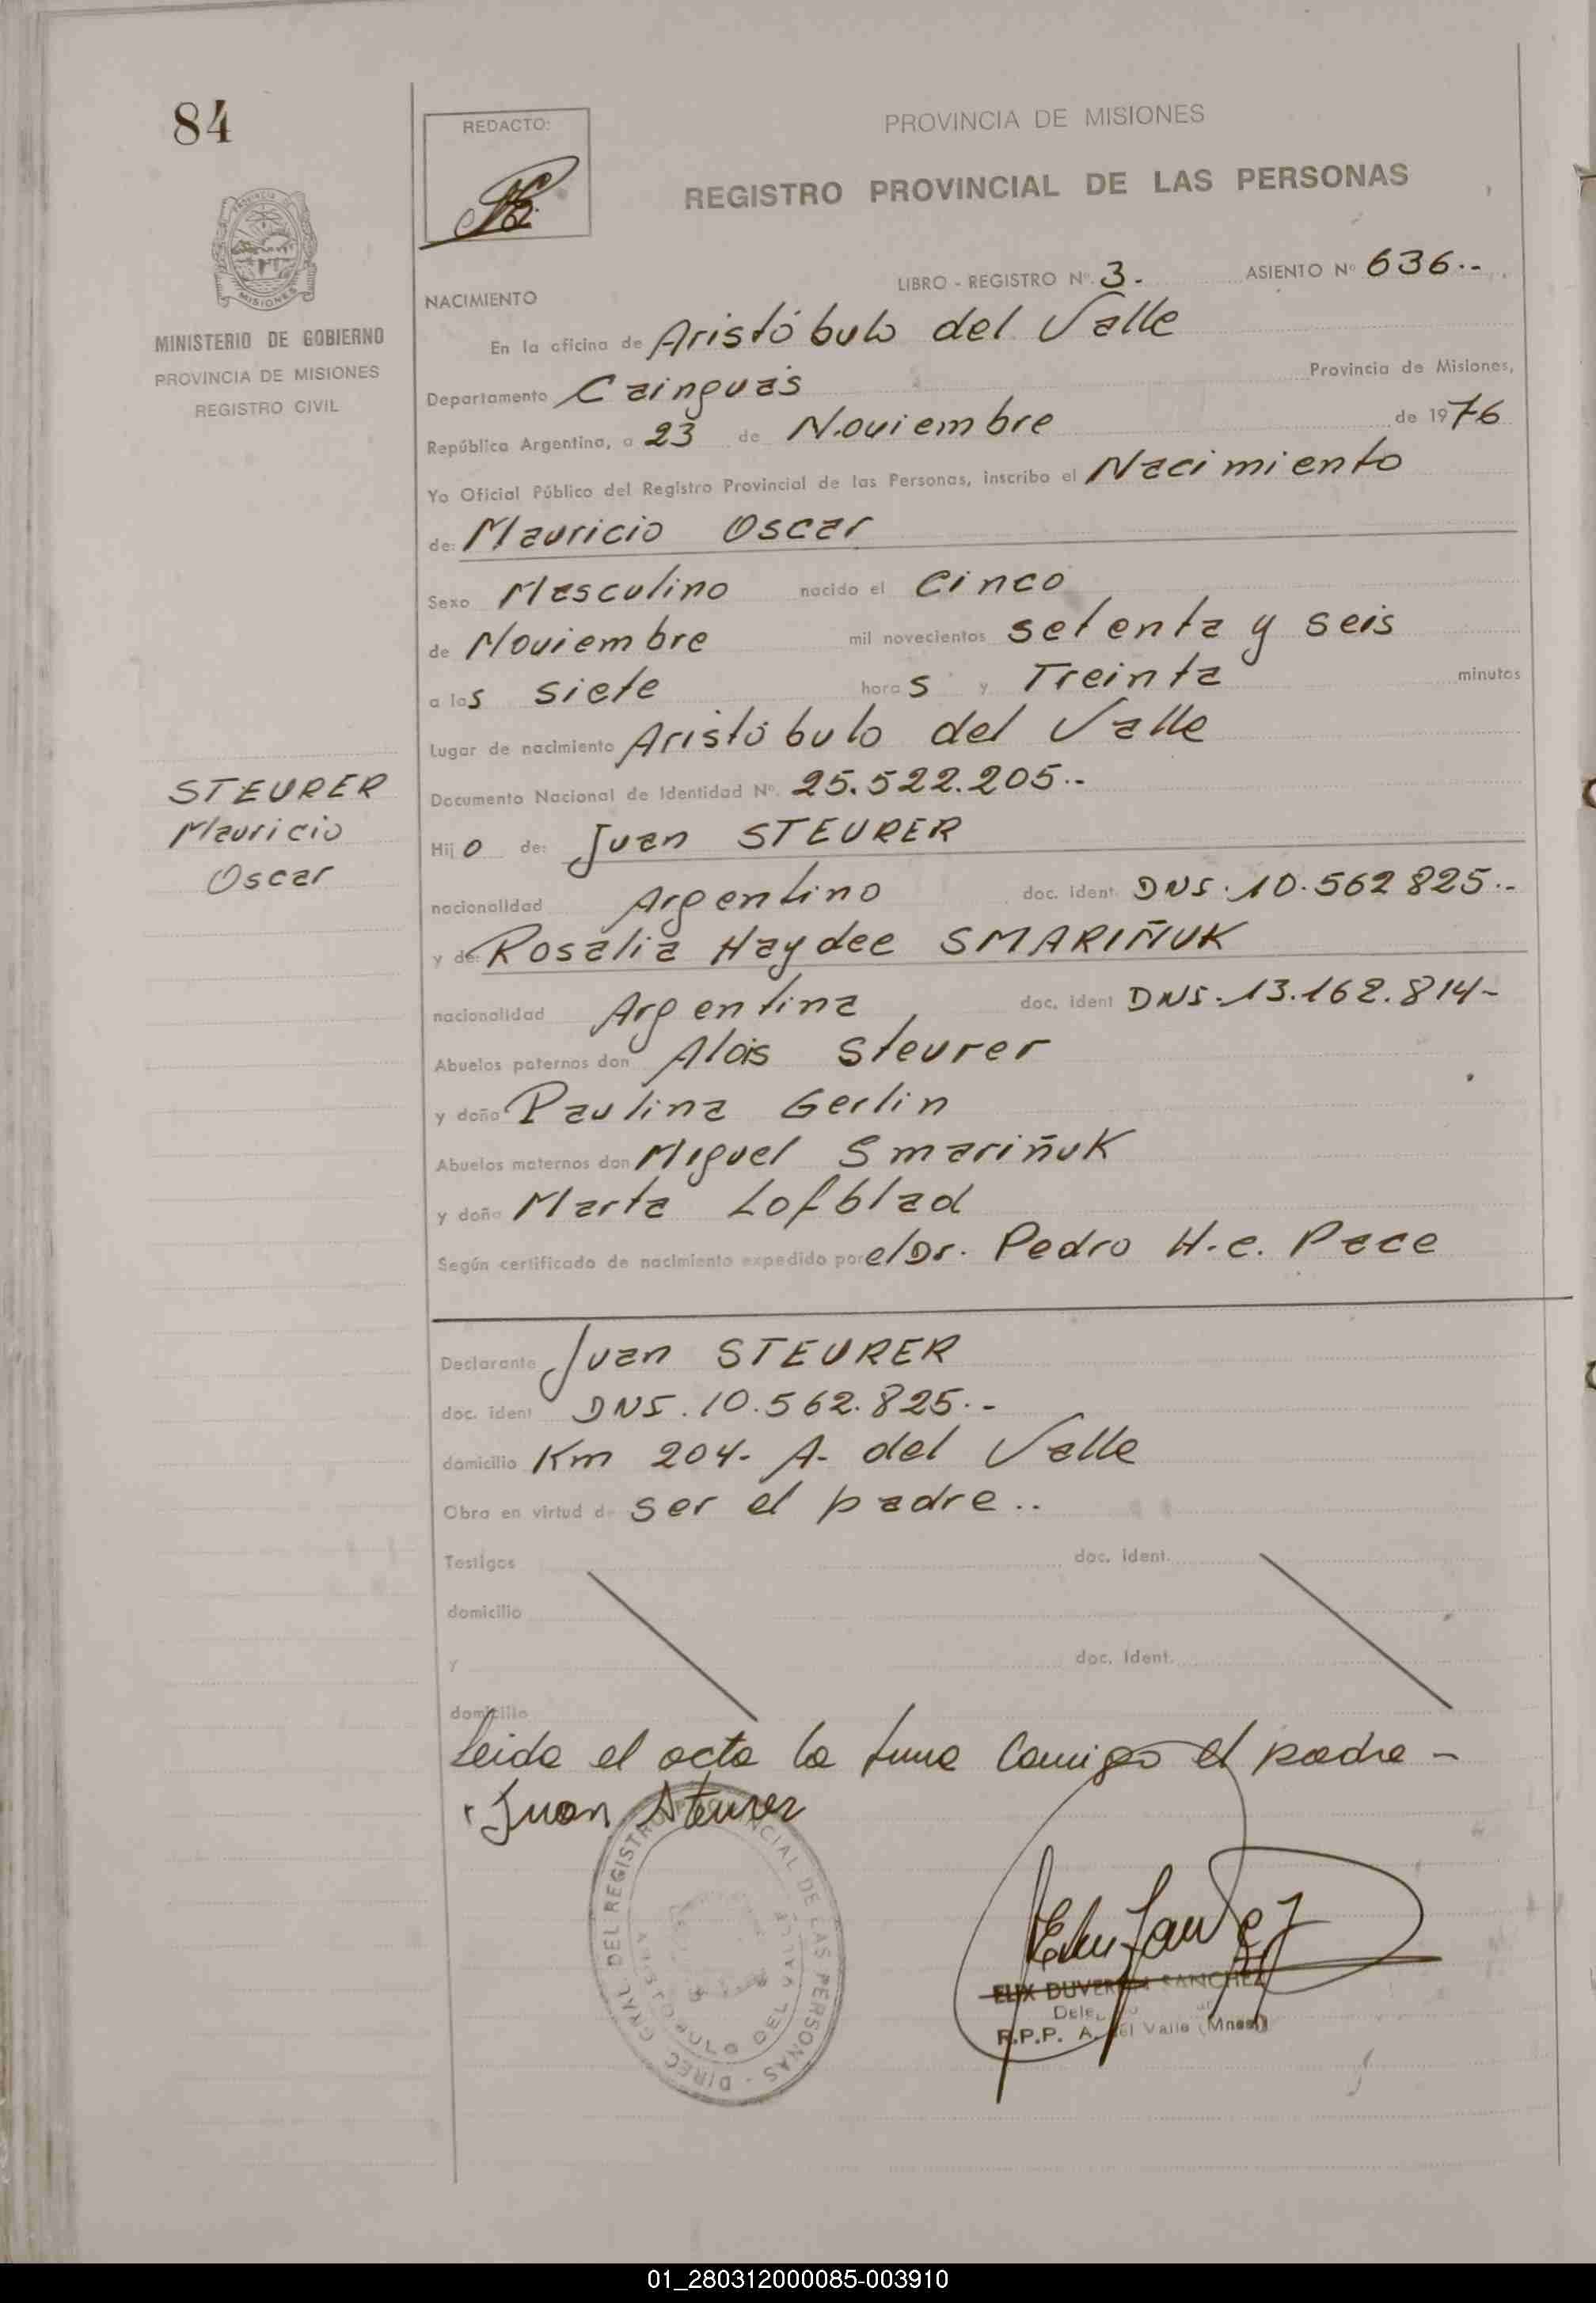 84
REDACTO:
PROVINCIA DE MISIONES
REGISTRO PROVINCIAL DE LAS PERSONAS
MISIONES
MINISTERIO DE GOBIERNO
PROVINCIA DE MISIONES
REGISTRO CIVIL
LIBRO - REGISTRO Nº. 3.- ASIENTO Nº 636.--
NACIMIENTO
En la oficina de Aristóbulo del Valle
Departamento Cainguás Provincia de Misiones,
República Argentina, a 23 de Noviembre de 1976
Yo Oficial Público del Registro Provincial de las Personas, inscribo el Nacimiento
de: Mauricio Oscar
Sexo Masculino nacido el Cinco
de Noviembre mil novecientos setenta y seis
a las siete horas y Treinta minutos
Lugar de nacimiento Aristóbulo del Valle
Documento Nacional de Identidad Nº. 25.522.205.--
STEURER
Mauricio
Oscar
Hijo de: Juan STEURER
nacionalidad Argentino doc. ident. DNS. 10.562825.--
y de: Rosalia Haydee SMARIÑUK
nacionalidad Argentina doc. ident DNS.13.162.814-
Abuelos paternos don Alois Steurer
y doña Paulina Gerlin
Abuelos maternos don Miguel SmariñuK
y doña Marta Lofblad
Según certificado de nacimiento expedido por el Dr. Pedro H.C. Pace
Declarante Juan STEURER
doc. ident DNS. 10.562.825.--
domicilio Km 204- A- del Valle
Obra en virtud de ser el padre..
Testigos doc. ident.
domicilio
y doc. ident.
domicilio
Leida el acta la firma conmigo el padre -
Juan Steurer
DIREC. GRAL. DEL REGISTRO PROVINCIAL DE LAS PERSONAS -
ARISTOBULO DEL VALLE
ELIX SANCHEZ
R.P.P. A. del Valle (Mnes)
01_280312000085-003910